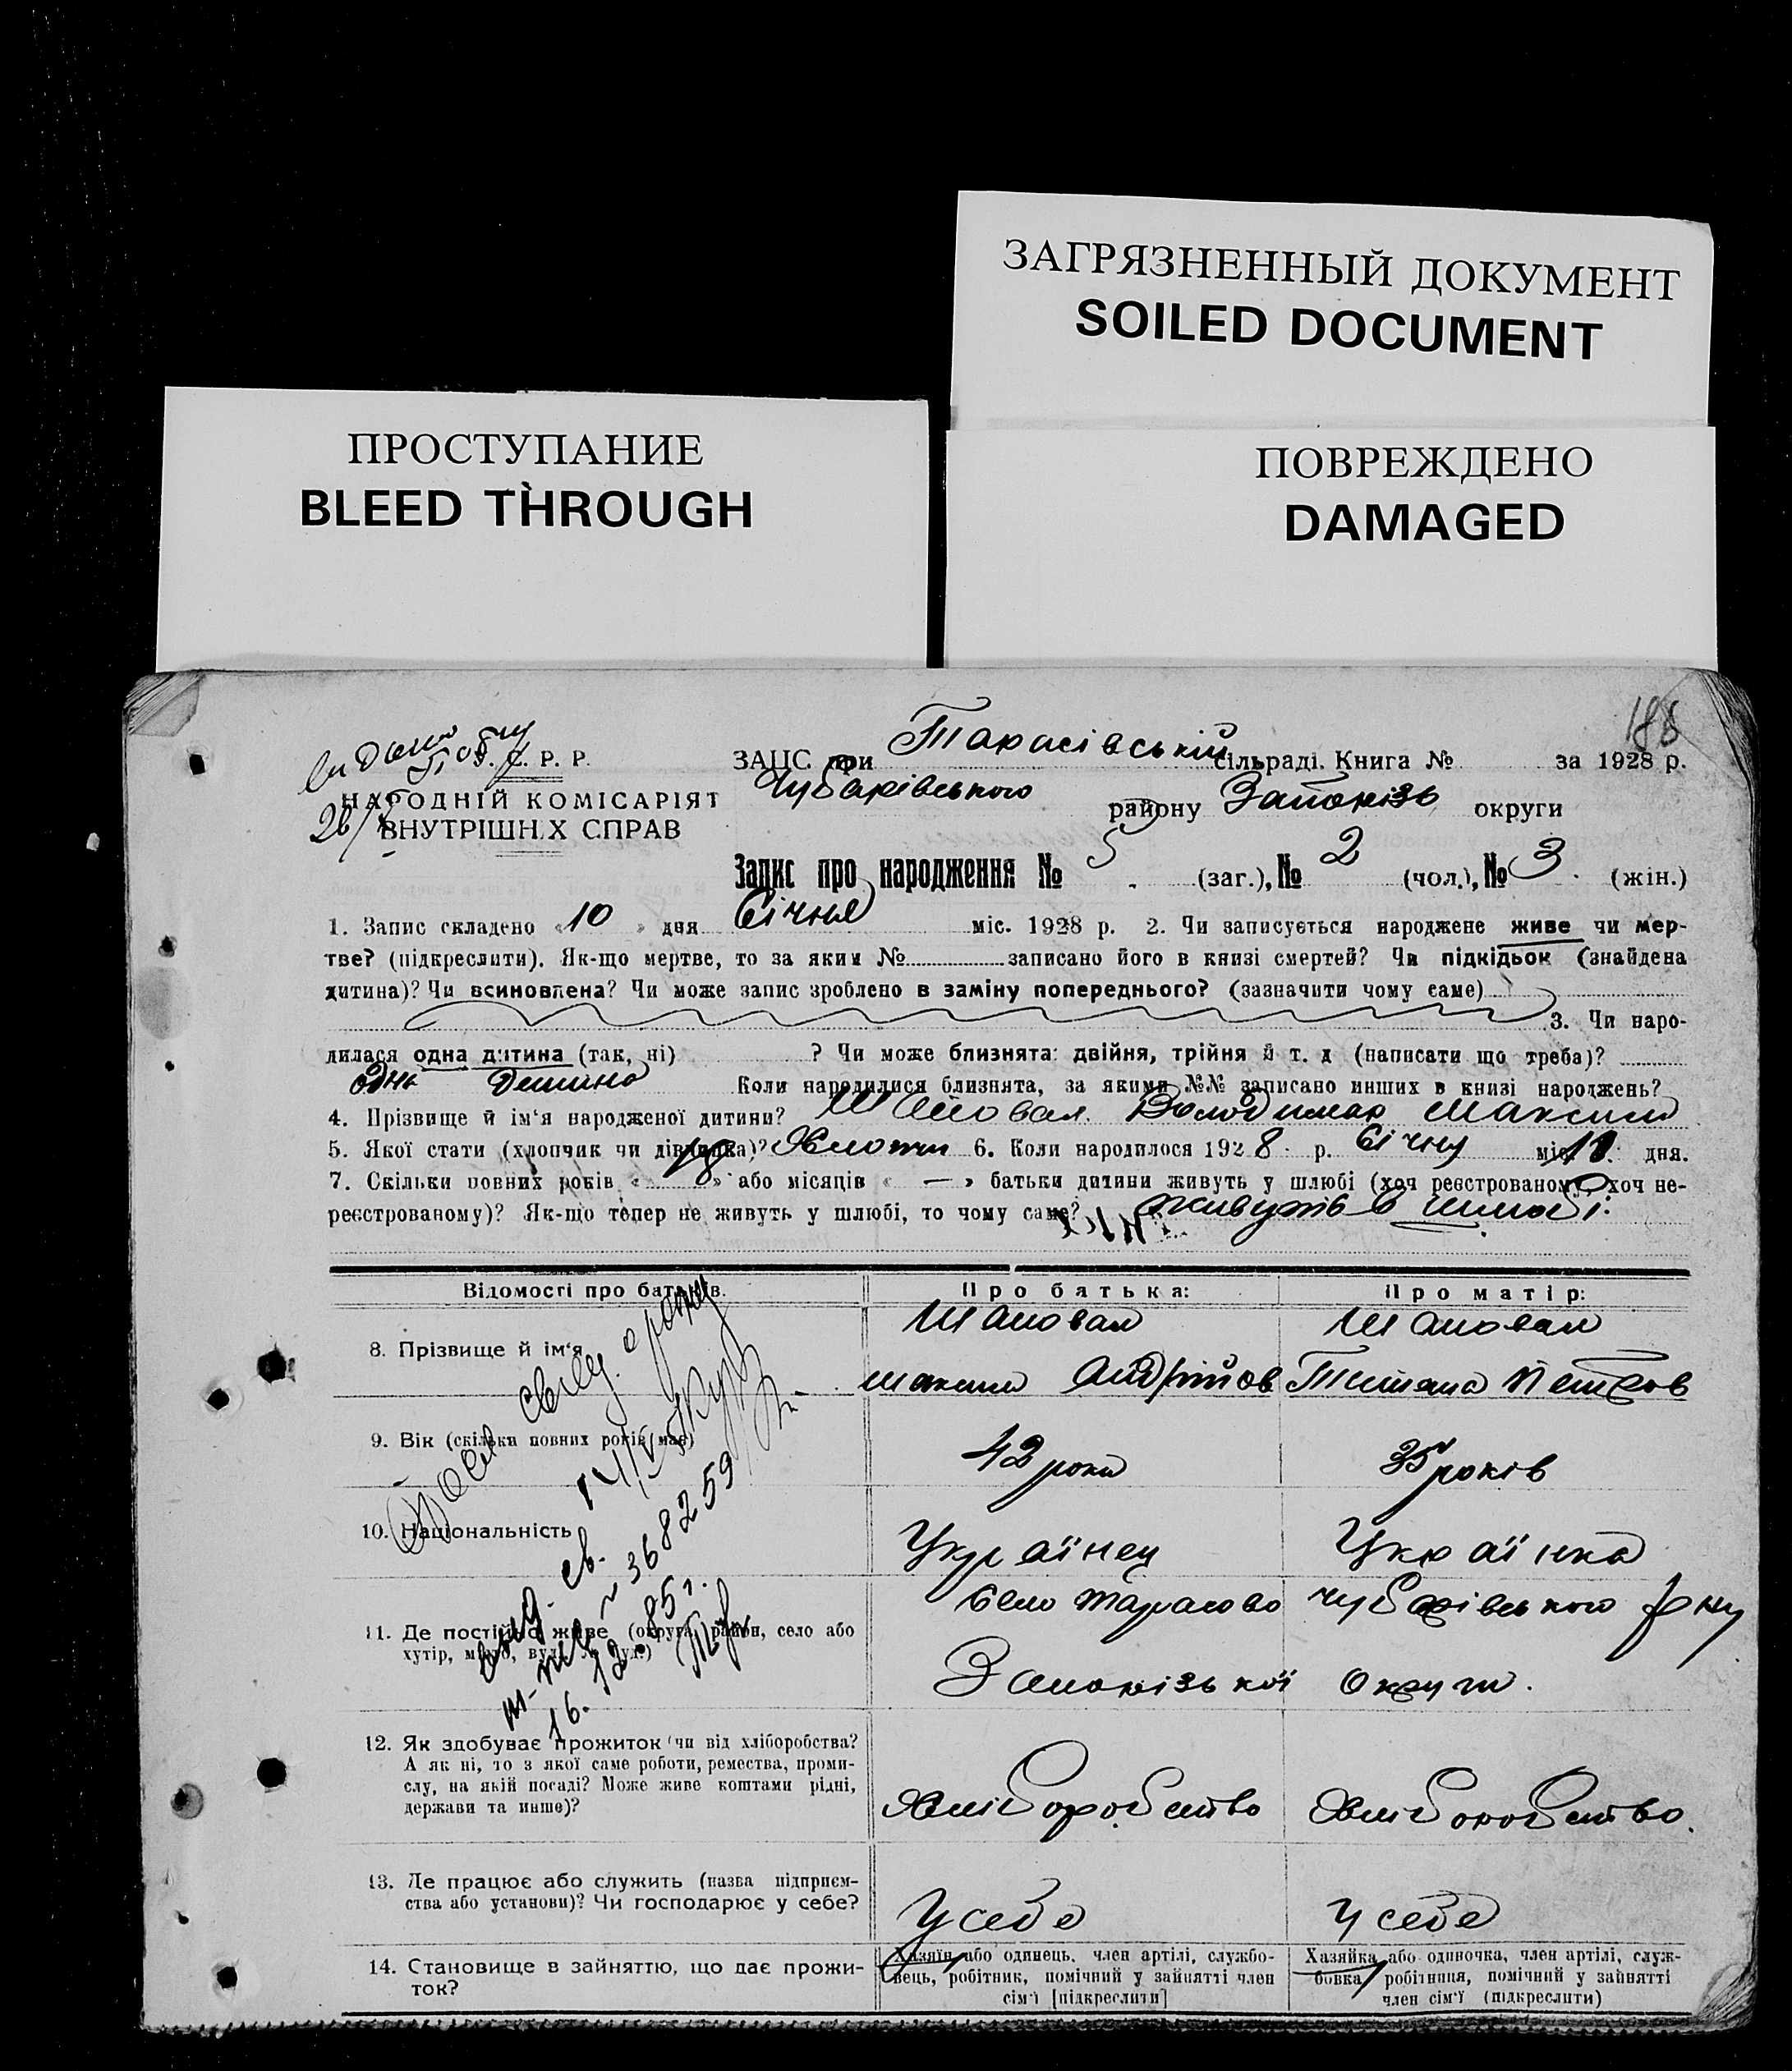 ЗАГРЯЗНЕННЫЙ ДОКУМЕНТ
SOILED DOCUMENT
ПРОСТУПАНИЕ
BLEED THROUGH
ПОВРЕЖДЕНО
DAMAGED
188
Р. Р.
ЗАЦС при Тарасівській сільраді. Книга № за 1928 р.
НАРОДНІЙ КОМІСАРІЯТ
Чубарівського району Запорізь округи
ВНУТРІШНІХ СПРАВ
Запис про народження № 5 (заг.), № 2 (чол.), № 3. (жін.)
1. Запис складено «10» дня Січня міс. 1928 р. 2. Чи записується народжене живе чи мер-
тве? (підкреслити). Як-що мертве, то за яким № записано його в книзі смертей? Чи підкідьок (знайдена
дитина)? Чи всиновлена? Чи може запис зроблено в заміну попереднього? (зазначити чому саме)
3. Чи наро-
дилася одна дитина (так, ні) ? Чи може близнята: двійня, трійня й т. д (написати що треба)?
одна дитина Коли народилися близнята, за якими №№ записано инших в книзі народжень?
4. Прізвище й ім'я народженої дитини? Шаповал Володимир Максим
5. Якої стати (хлопчик чи дівчинка)? Хлопчи 6. Коли народилося 1928 р. Січню міс. дня.
7. Скільки повних років «18» або місяців « — » батьки дитини живуть у шлюбі (хоч реєстрованому, хоч не-
реєстрованому)? Як-що тепер не живуть у шлюбі, то чому саме? живуть в шлюбі.
Відомості про батьків. Про батька: Про матір:
8. Прізвище й ім'я Шаповал Шаповал
Максим Андрійов Титяна Петров
9. Вік (скільки повних років має) 42 роки 35 років
10. Національність Українец Українка
11. Де постійно живе (округа, район, село або
хутір, місто, вул. № буд.)
село Тарасово Чубарівського р-ну
Запорізької округи.
№ 368259
16. 12. 85 г.
12. Як здобуває прожиток (чи від хліборобства?
А як ні, то з якої саме роботи, ремества, проми-
слу, на якій посаді? Може живе коштами рідні,
держави та инше)?
Хліборобство Хліборобство.
13. Де працює або служить (назва підприєм-
ства або установи)? Чи господарює у себе?
У себе У себе
14. Становище в зайняттю, що дає прожи-
ток?
Хазяїн або одинець, член артілі, службо-
вець, робітник, помічний у зайнятті член
сім'ї [підкреслити]
Хазяйка або одиночка, член артілі, служ-
бовка, робітниця, помічний у зайнятті
член сім'ї (підкреслити)